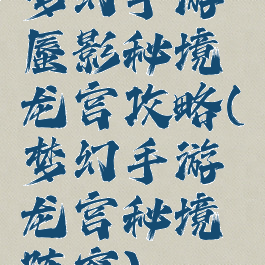 梦幻手游
蜃影秘境
龙宫攻略(
梦幻手游
龙宫秘境